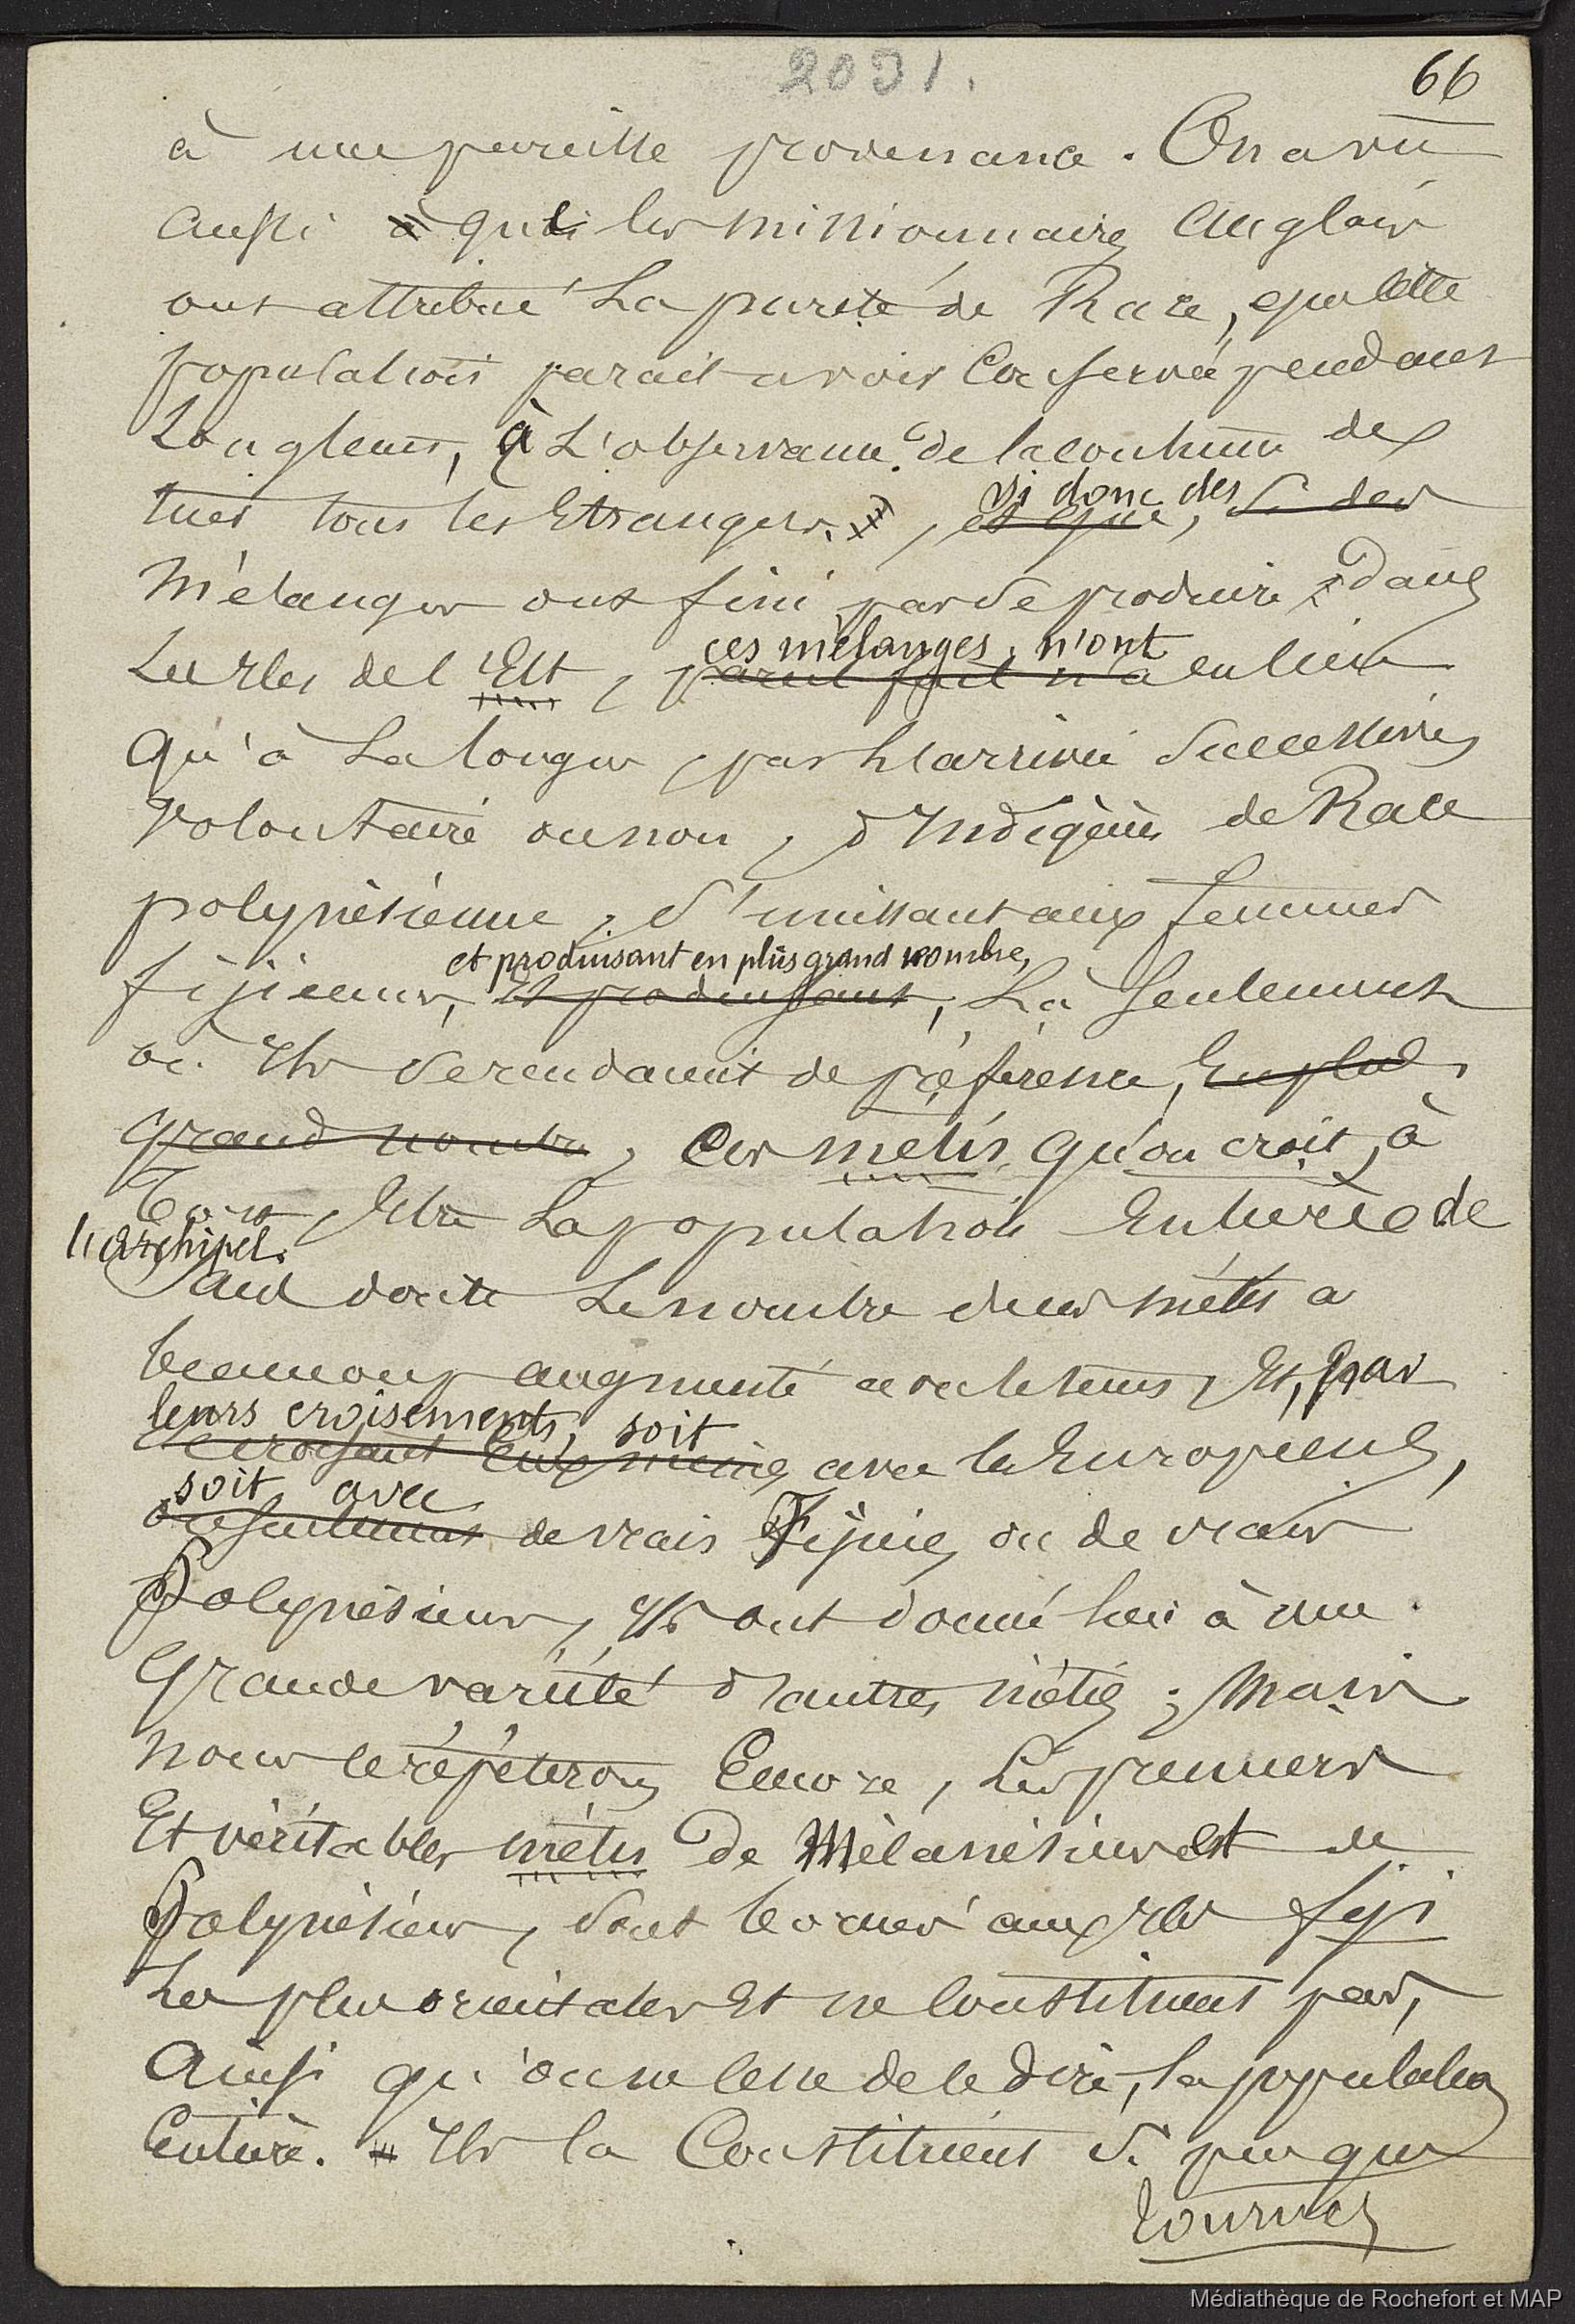 2031.
66
à une pareille provenance. On a vu
aussi que les missionnaires Anglais
ont attribué la pureté de Race, que cette
population parait avoir conservée pendant
Longtems, à L'observance de la coutume de
tuer tous les Etrangers. , et que, si des
si donc des
Mélanges ont fini par se produire dans
Les Iles de l'Est, pareil fait n'a eu lieu
ces mélanges, n'ont
qu'à La longue, par L'arrivée successive,
volontaire ou non, d'Indigènes de Race
polynésienne, s'unissant aux femmes
et produisant en plus grand nombre,
fijiennes, et produisant, Là seulement
où Ils se rendaient de préférence, en plus
grand nombre, ces métis, qu'on croit, à
Tort, Etre La population Entière de
l'Archipel.
Sans doute Le nombre de ces métis a
beaucoup augmenté avec le tems, Et, par
leurs croisements, soit
se croisant Eux mêmes avec les Européens,
soit avec
ou seulement de vrais Fijiens ou de vrais
Polynésiens, Ils ont donné lieu à une
Grande variété d'autres métis ; Mais
nous le répéterons Encore, Les premiers
Et véritables métis de Mélanésiens et de
Polynésiens, sont bornés aux Iles fiji
Les plus orientales Et ne constituent pas,
Ainsi qu'on ne cesse de le dire, la population
Entière. Ils la Constituent si peu que
Tournez
Médiathèque de Rochefort et MAP